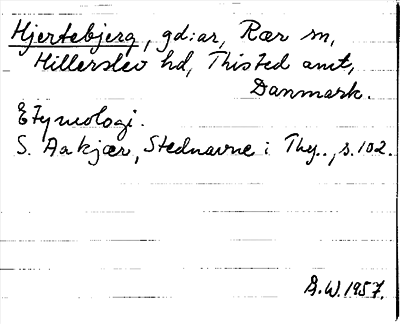 Hjertebjerg, gd:ar, Rær sn,
Hillerslev hd, Thisted amt,
Danmark.
Etymologi.
S. Aakjær, Stednavne i Thy.., s. 102.
B.W. 1957.